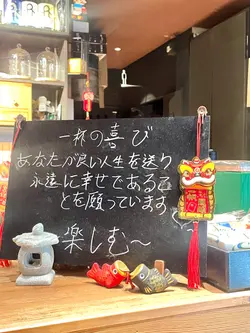 一杯の喜び
あなたが良い人生を送り
永遠に幸せであるこ
とを願っています。
楽しむ〜